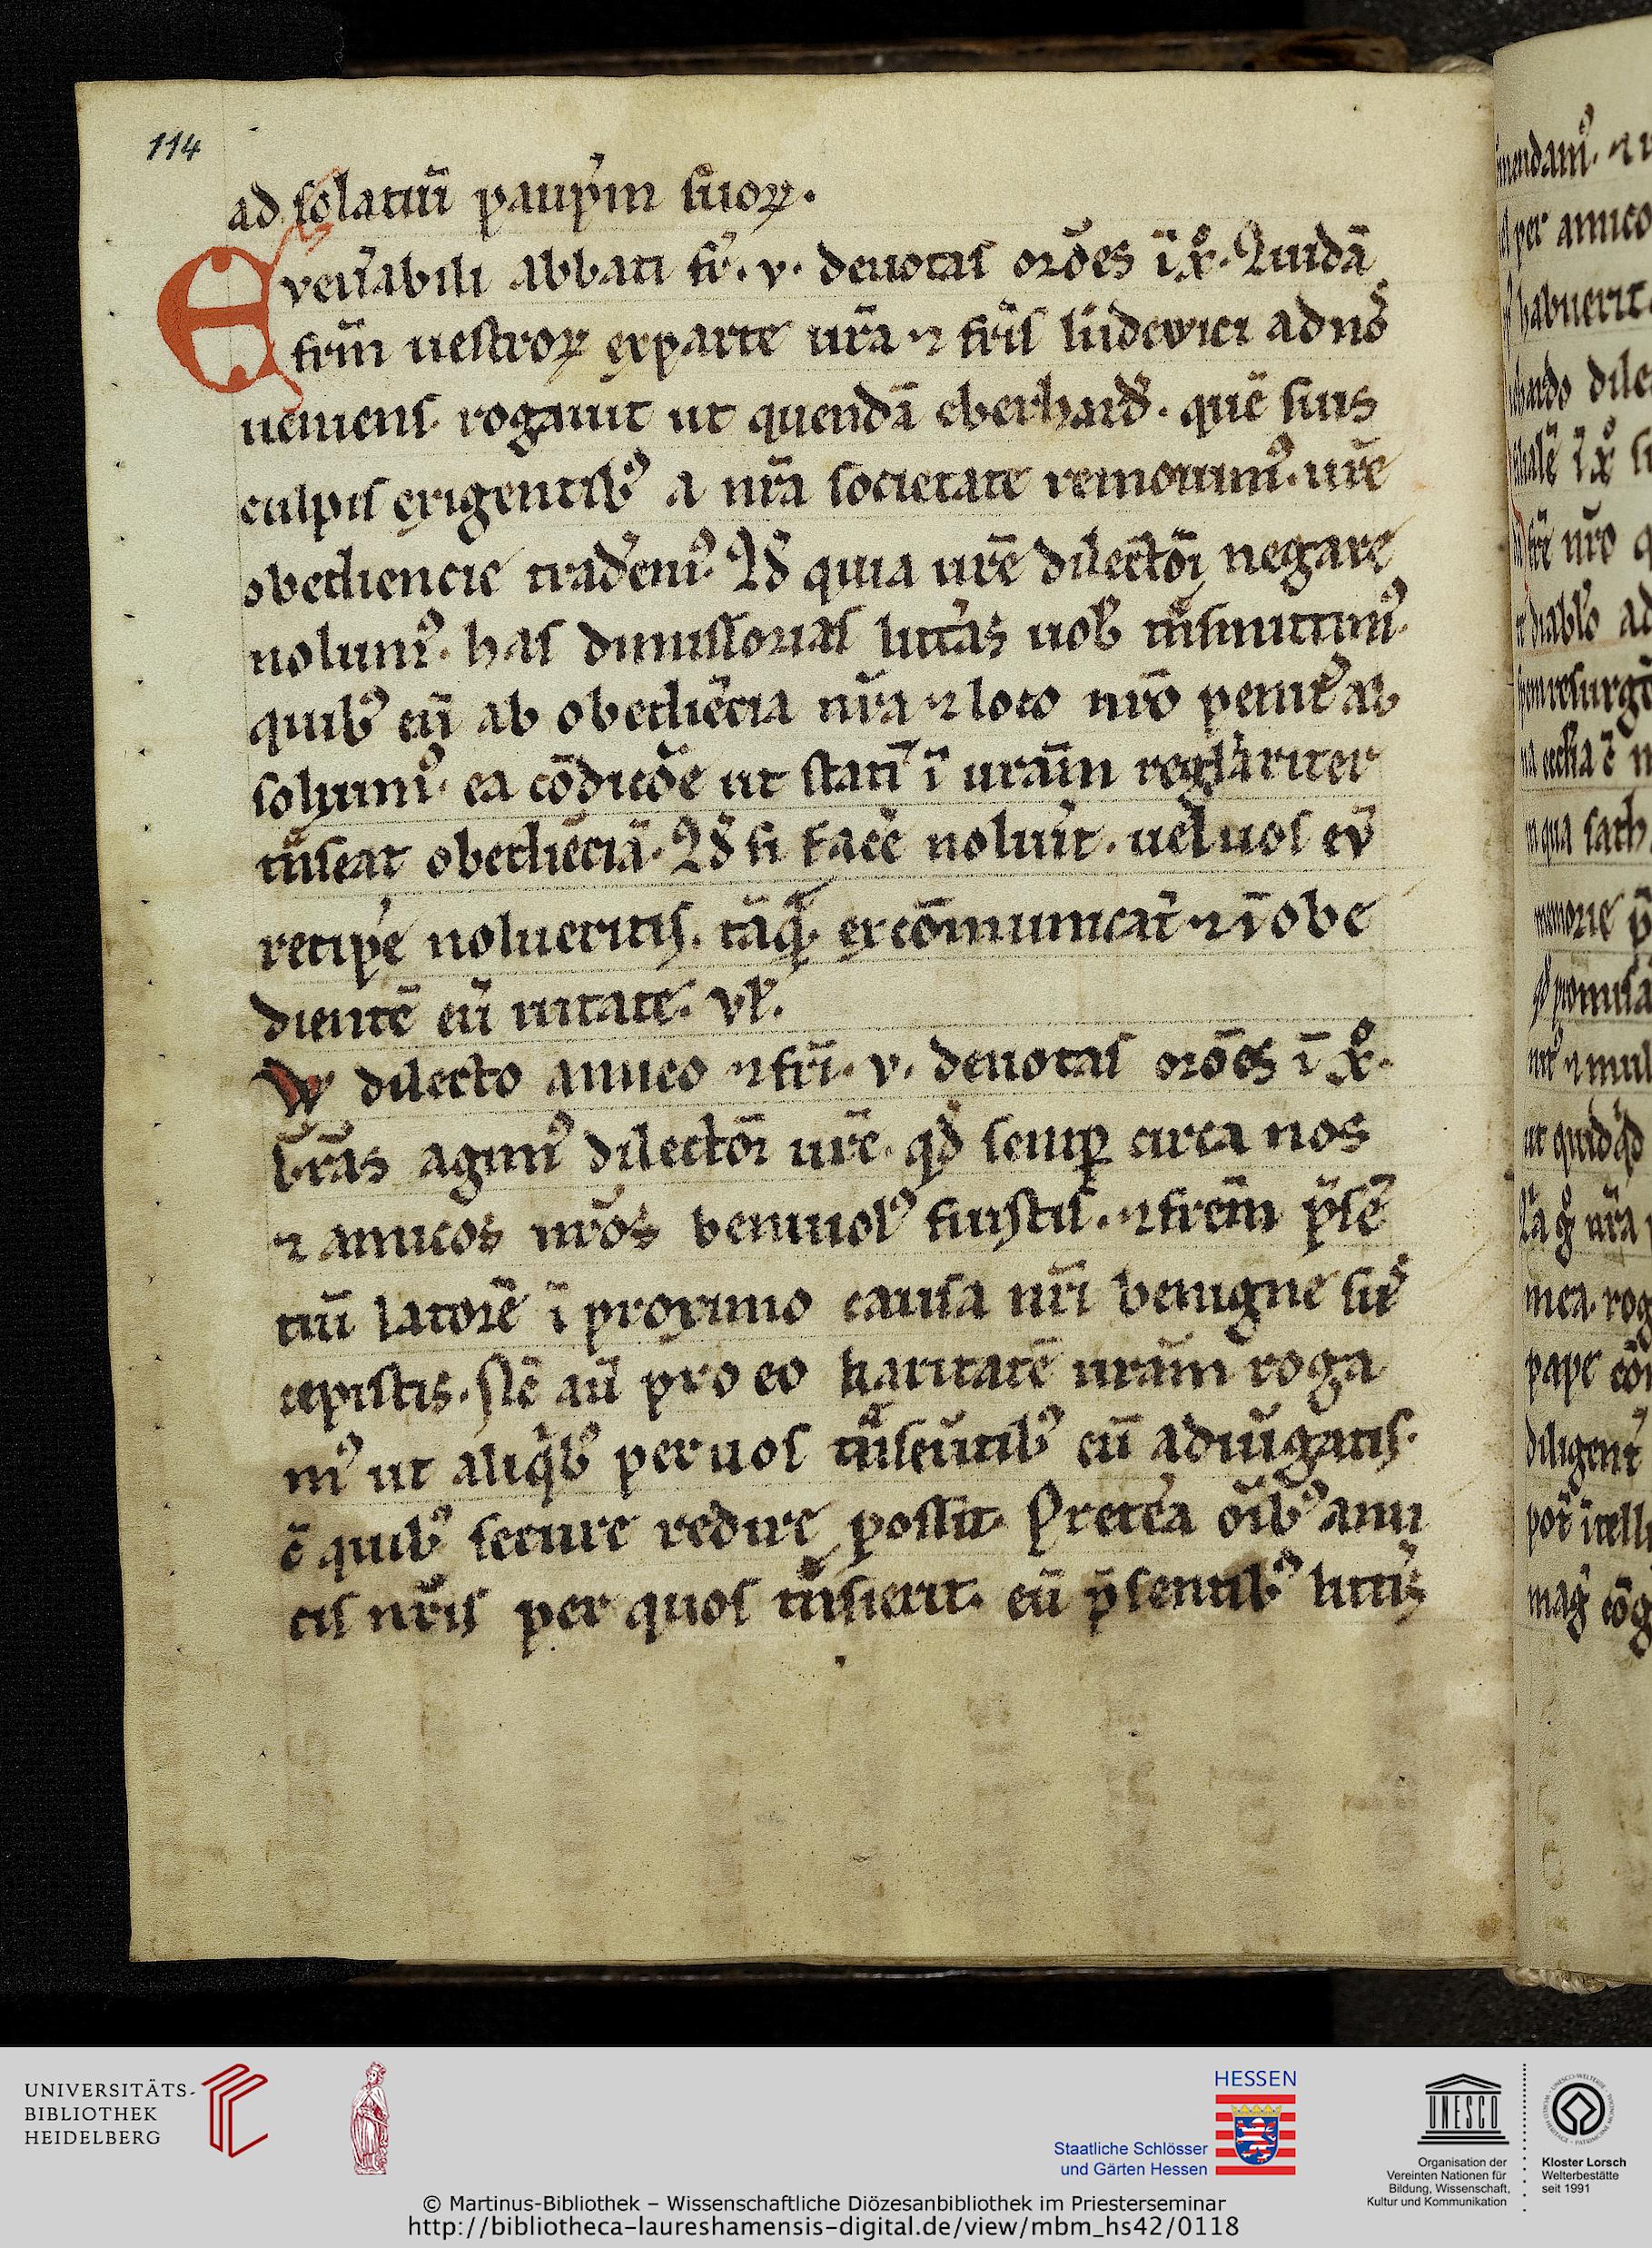 114
ad solatiū paup̄m suoꝝ.
E ven̄abili abbati fr̄. v. deuotas or̄oes ī xp̊. Quidā
fr̄m uestroꝝ exparte ur̄a ⁊ fr̄is ludewici ad nos
ueniens. rogauit ut quendā eberhard̄. quē suis
culpis exigentibꝰ a nr̄a societate remouimꝰ. ur̄e
obediencie trad̄emꝰ. Sꝫ quia ur̄e dilectōi negare
nolumꝰ. has dimissorias litt̄as uob̄ tͣnsmittimꝰ.
quibꝰ eū ab obediēcia nr̄a ⁊ loco nr̄o penitꝰ ab
soluimꝰ. ea cōdicōe ut statī ī ur̄am regl̄ariter
tͣnseat obediēciā. Sꝫ si facē noluīt. uel uos eū
recip̄e nolueritis. tāqͣꝫ excōmunicatū ⁊ īobe
dientē eū uitate. vł.
W dilecto amico ⁊ fr̄i. v. deuotas or̄oes ī xp̊.
Gr̄as agimꝰ dilectōi ur̄e. qd̄ semꝑ circa nos
⁊ amicos nr̄os beniuolꝰ fuistis. ⁊ fr̄em p̄sē
tiū latorē ī proximo causa nr̄i benigne sus
cepistis. Nūc aū pro eo karitatē ur̄am roga
mꝰ ut aliqͥbꝰ per uos tͣnseūtibꝰ eū adiūgatis.
c̄ quibꝰ secure redire possit. Pretēa oībꝰ ami
cis nr̄is per quos tͣnsierit. eū p̄sentibꝰ litt̄is
UNIVERSITÄTS-
BIBLIOTHEK
HEIDELBERG
HESSEN
Staatliche Schlösser
und Gärten Hessen
UNESCO
Organisation der
Vereinten Nationen für
Bildung, Wissenschaft,
Kultur und Kommunikation
Kloster Lorsch
Welterbestätte
seit 1991
© Martinus-Bibliothek – Wissenschaftliche Diözesanbibliothek im Priesterseminar
http://bibliotheca-laureshamensis-digital.de/view/mbm_hs42/0118